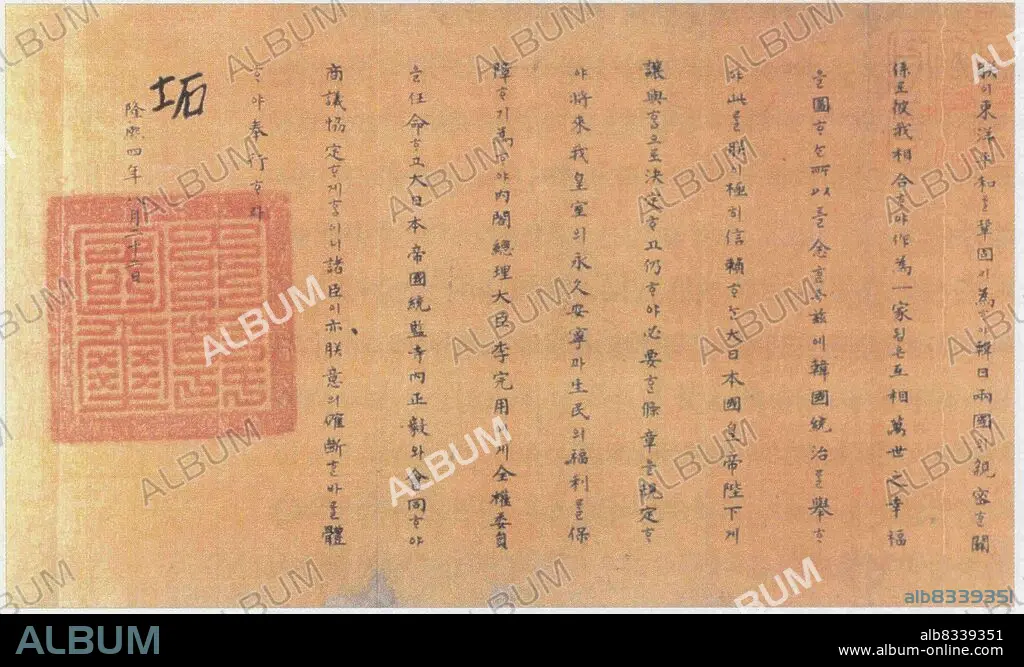 朕이東洋平和를鞏固히爲ᄒᆞ야韓日兩國의親密ᄒᆞᆫ關
係로彼我相合ᄒᆞ야作爲一家됨은互相萬世之幸福
을圖ᄒᆞᄂᆞᆫ所以를念ᄒᆞᆫ바玆에韓國統治를擧ᄒᆞ
야此를朕이極히信賴ᄒᆞᄂᆞᆫ大日本國皇帝陛下게
讓與ᄒᆞᆷ으로決定ᄒᆞ고仍ᄒᆞ야必要ᄒᆞᆫ條章을規定ᄒᆞ
야將來我皇室의永久安寧과生民의福利를保
障ᄒᆞ기爲ᄒᆞ야內閣總理大臣李完用에게全權委員
을任命ᄒᆞ고大日本帝國統監寺內正毅와會同ᄒᆞ야
商議協定ᄒᆞ게ᄒᆞᆷ이니諸臣이亦朕意의確斷ᄒᆞᆫ바를體
ᄒᆞ야奉行ᄒᆞ라
隆熙四年八月二十二日
坧
ALBUM
alb8339351
ALBUM
alb8339351
www.album-online.com